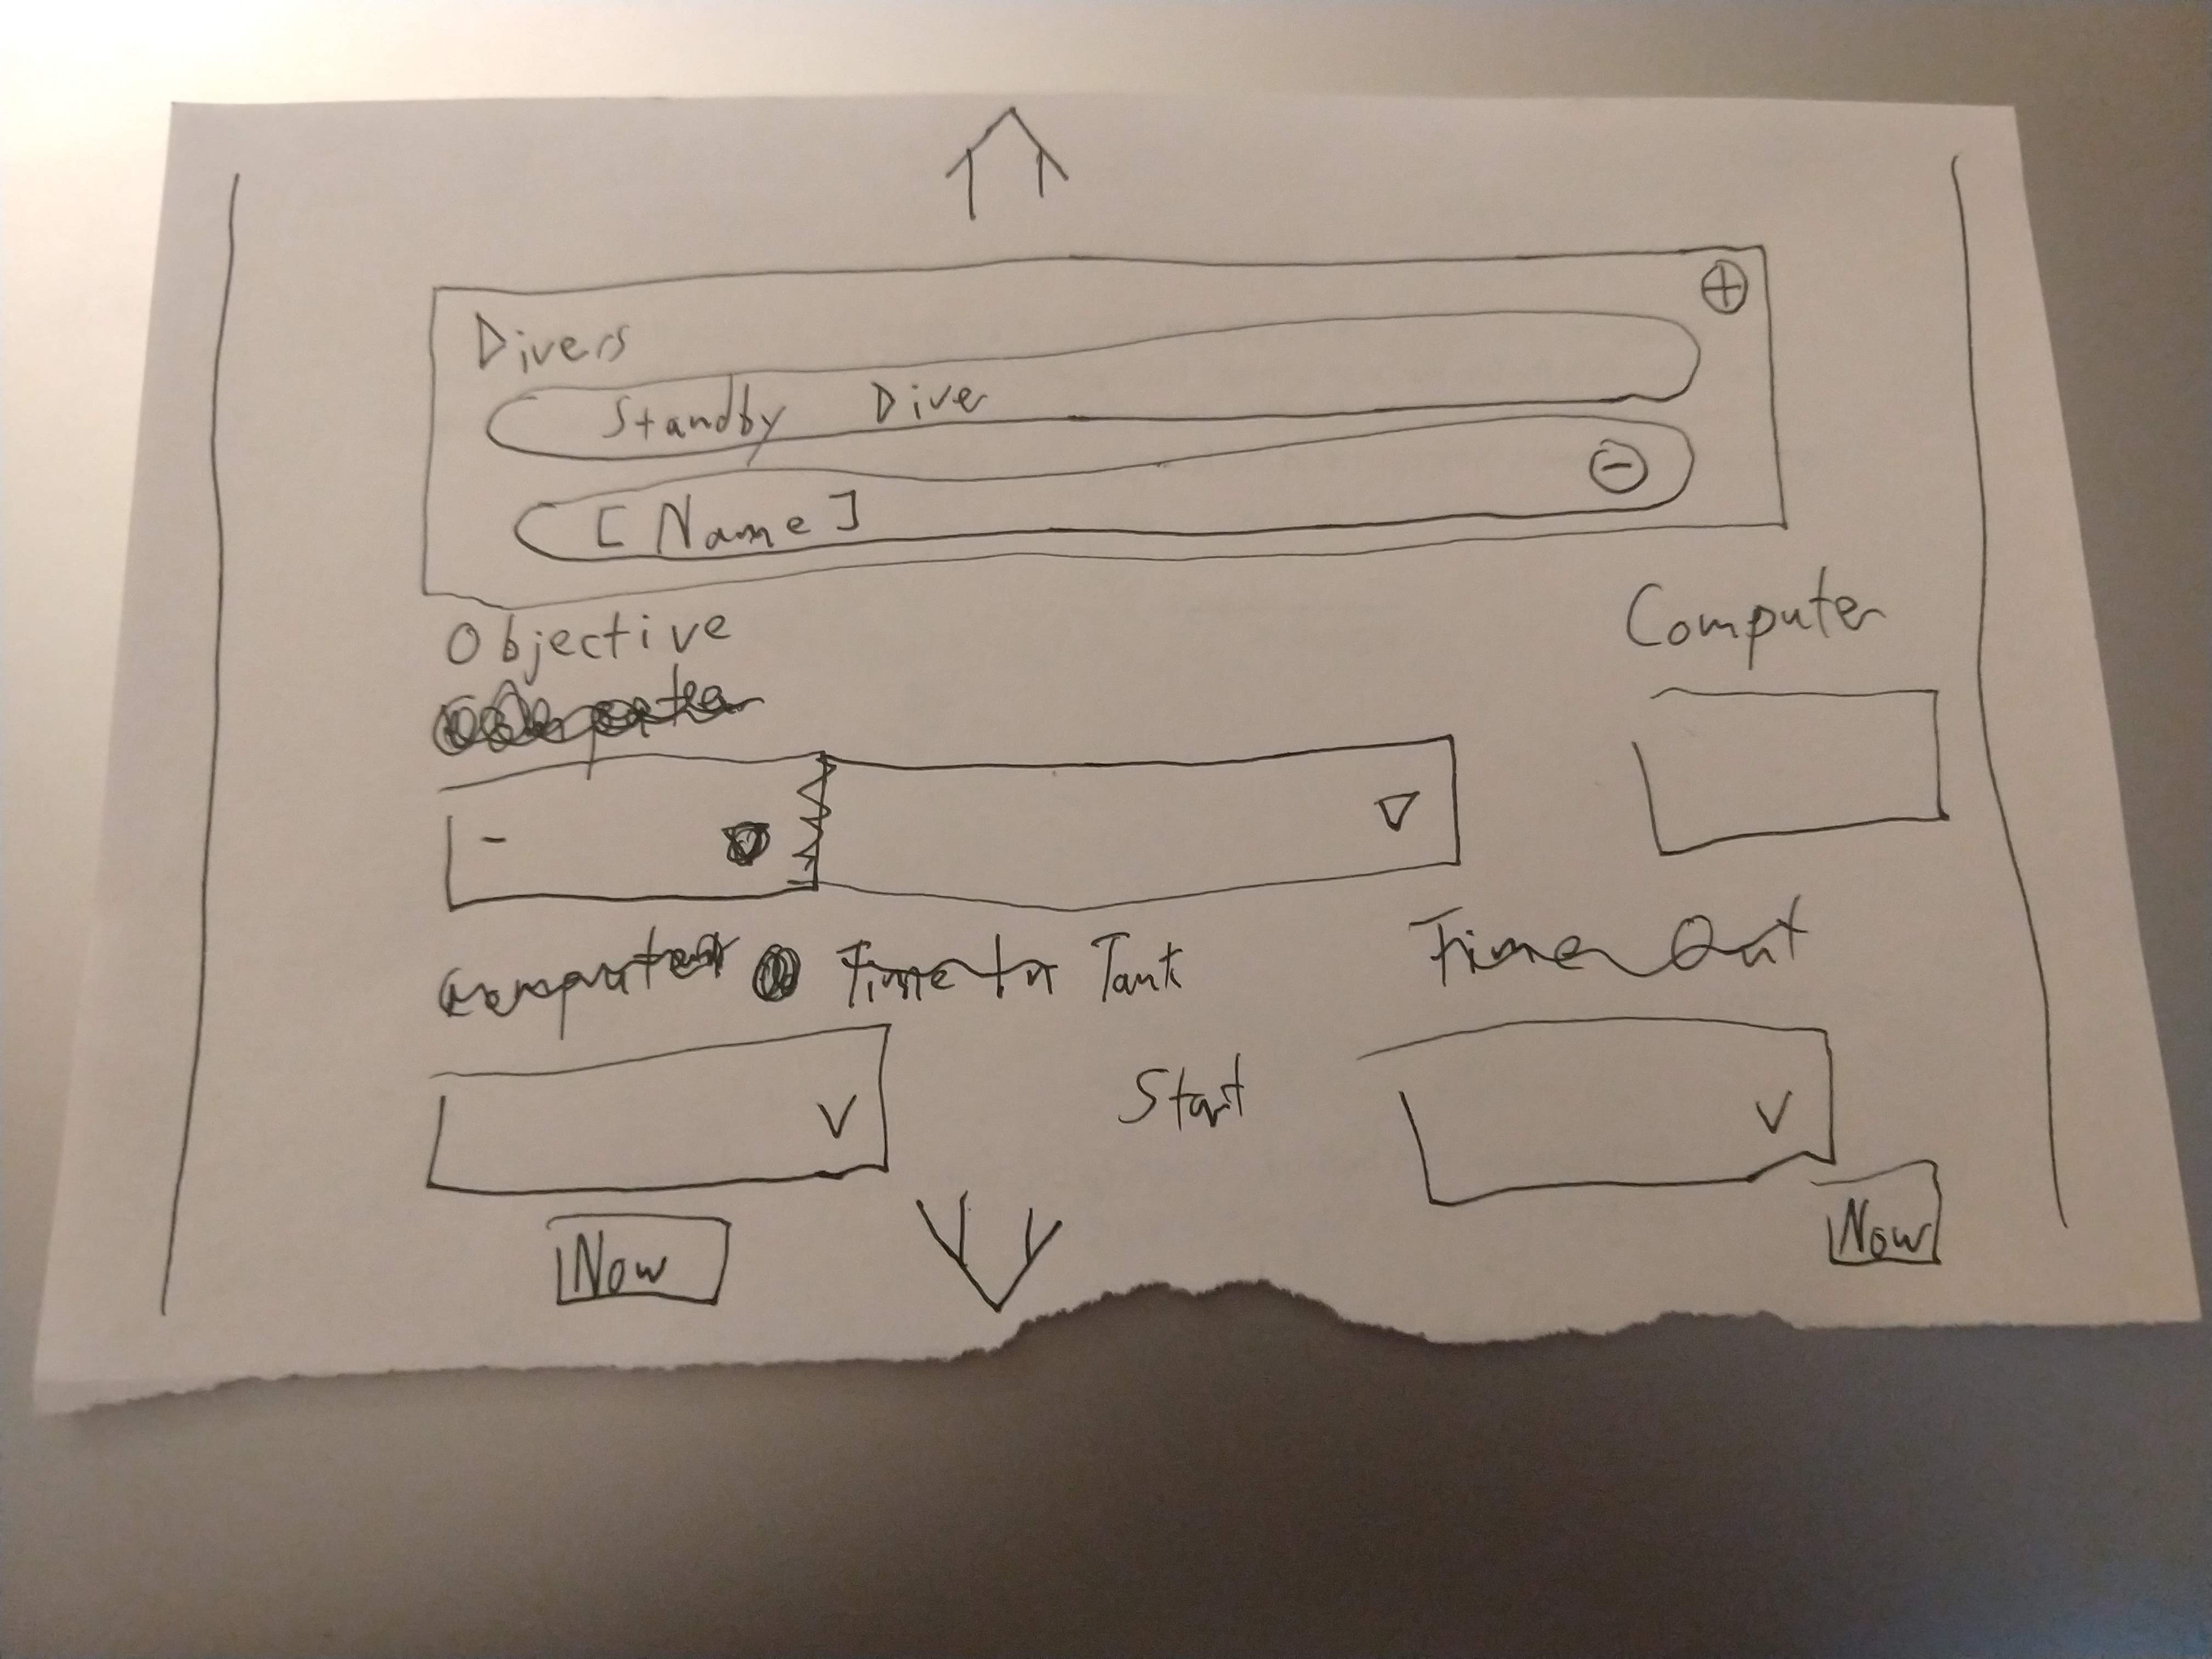 Divers
Standby Diver
[Name]
Objective
Computer
Time In Tank
Time Out
Start
Now
Now